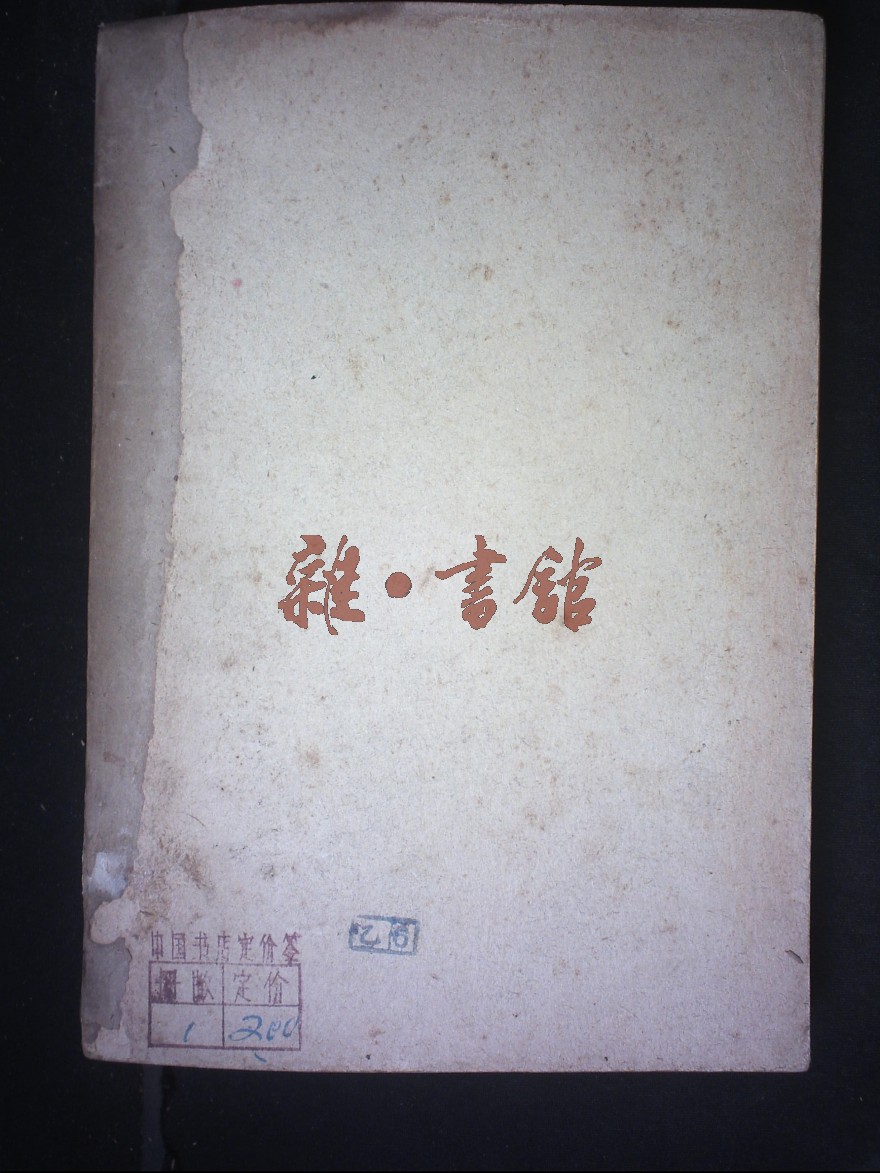 雜·書館
乙 6
中国书店定价签
册数 定价
1 2.00